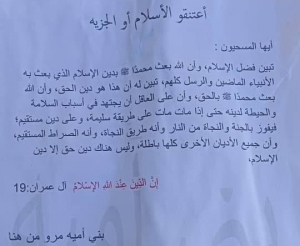 أعتنقو الأسلام أو الجزيه
أيها المسحيون :
تبين فضل الإسلام، وأن الله بعث محمدًا ﷺ بدين الإسلام الذي بعث به
الأنبياء الماضين والرسل كلهم، تبين له أن هذا هو دين الحق، وأن الله
بعث محمدًا ﷺ بالحق، وأن على العاقل أن يجتهد في أسباب السلامة
والحيطة لدينه حتى إذا مات مات على طريقة سليمة، وعلى دين مستقيم؛
فيفوز بالجنة والنجاة من النار وأنه طريق النجاة، وأنه الصراط المستقيم،
وأن جميع الأديان الأخرى كلها باطلة، وليس هناك دين حق إلا دين
الإسلام،
إِنَّ الدِّينَ عِنْدَ اللهِ الإِسْلامُ آل عمران:19
بني أميه مرو من هنا